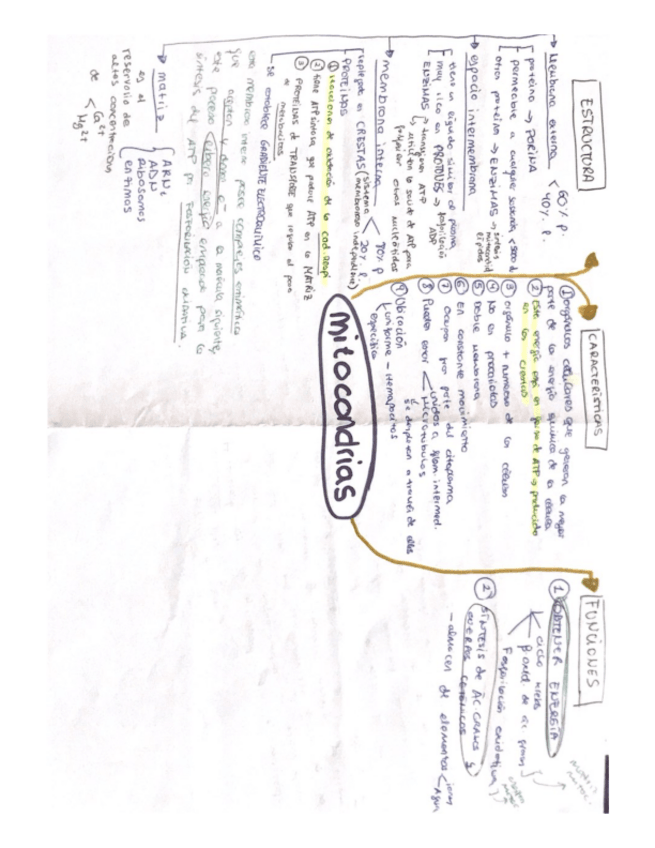 ESTRUCTURA
Membrana externa < 60% P.
40% l.
proteína → PORINA
permeable a cualquier
otras proteína → ENZIMAS → síntesis
lípidos
espacio intermembrana
tiene un líquido similar al plasma
muy rico en PROTONES → fosforilación
ENZIMAS ADP
transfieren ATP
utilizan la salida de ATP para
fosforilar otros nucleótidos
membrana interna < 80% P
20% l.
replegada en CRESTAS (sistema
membranoso independiente)
PROTEÍNAS
① reacciones de oxidación de la cad. resp.
② tiene ATP sintasa que produce ATP en la MATRIZ
③ PROTEÍNAS de TRANSPORTE que regulan el paso
de metabolitos
- se establece GRADIENTE ELECTROQUÍMICO
esta membrana interna posee complejos enzimáticos
que aceptan y donan e⁻ a la molécula siguiente,
este proceso libera energía empleada para la
síntesis del ATP por fosforilación oxidativa.
matriz
es el
reservorio de
altas concentraciones
de < Ca²⁺
Mg²⁺
ARNt
ADN
Ribosomas
enzimas
Mitocondrias
CARACTERÍSTICAS
① orgánulos celulares que generan la mayor
parte de la energía química de la célula
② Esta energía está en forma de ATP → producido
en las crestas
③ orgánulo + numeroso de la célula
④ No en procariotas
⑤ Doble membrana
⑥ En constante movimiento
⑦ Ocupan gran parte del citoplasma
⑧ Pueden estar < unidas a filam. intermed.
microtúbulos
se desplazan a través de ellos
⑨ Ubicación
uniforme - Hepatocitos
específica
FUNCIONES
① OBTENER ENERGÍA
ciclo Krebs
β oxid. de ác. grasos
Fosforilación oxidativa
② SÍNTESIS de ÁC GRASOS y
CUERPOS CETÓNICOS
- almacén de elementos < iones
agua